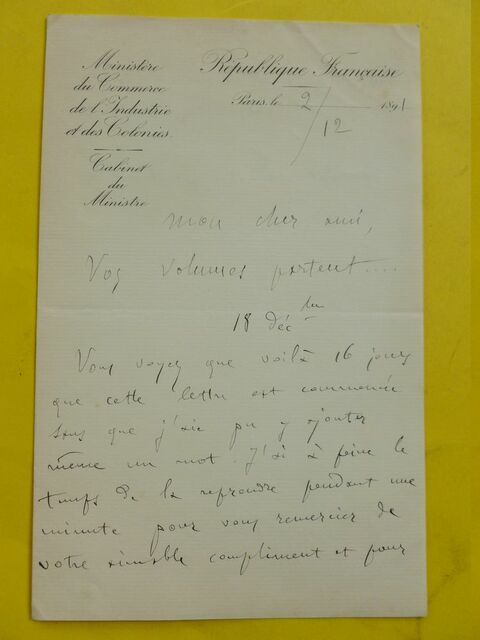 Ministère
du Commerce
de l'Industrie
et des Colonies.
Cabinet
du
Ministre
République Française
Paris, le 2/12 1891
Mon cher ami,
Vos volumes partent....
18 déc bre
Vous voyez que voilà 16 jours
que cette lettre est commencée
sans que j'aie pu y ajouter
même un mot. J'ai à peine le
temps de la reprendre pendant une
minute pour vous remercier de
votre aimable compliment et pour